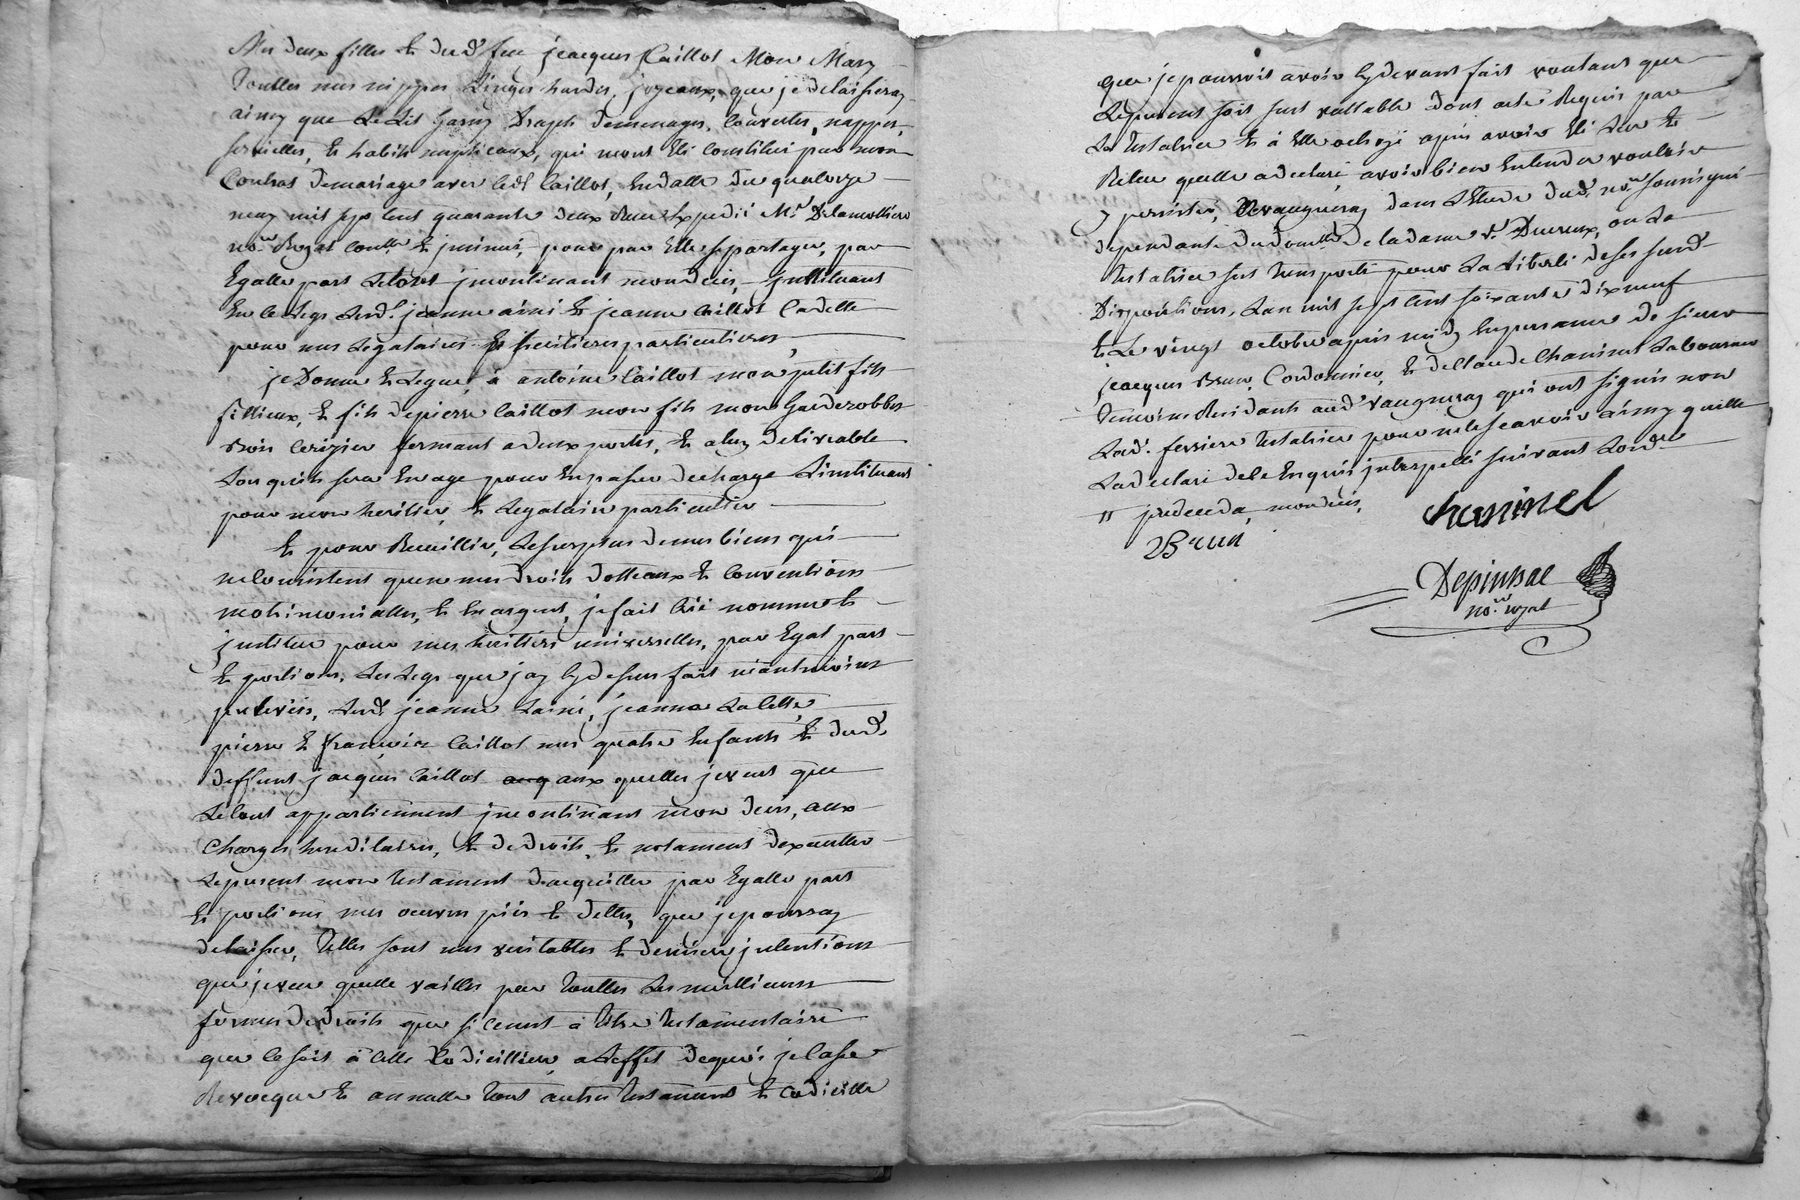 Mes deux filles et dud.t feu jeacques Caillot Mon Mary
Toutles mes nippes Linges hardes, joyeaux, que je delaisseray
ainsy que Le Lit Garny Draps demenages, Couvertes, nappes,
servielles, et habits nuptieaux, qui mont Eté Constitué par mon
Contrat demariage avec led.t Caillot, En datte du quatorze
may mil sept Cent quarante deux Reçu Expedié M.e Delamolliere
no.re Royal Conlle Et jnsinué, pour par Elle separtager, par
Egalle part Letout jncontinant mondeces, jnstituant
En ce Legs Lesd. jeanne ainé Et jeanne Caillot Cadette
pour mes Legataires Et heritieres particulieres,
je Donne Et Legue, à antoine Caillot mon petit fils
fillieux, Et fils depierre Caillot mon fils mon Garderobbes
Bois Cerizier fermant adeux portes, Et aluy delivrable
Lorsquils sera En age pour En passer decharge Linstituant
pour mon heritier, Et Legataire particulier
Et pour Recuillir, Lesurplus demes biens qui
neConsistent quene mes droits dotteaux Et Conventions
matrimonialles, Et En argent, jefait Crée nomme et
jnstitue pour mes heritiers universelles, par Egal part
Et portions, Les Legs que jay Cydessus fait néantmoins
prelevés, Lesd. jeanne Lainé, jeanne Ladette,
pierre Et francoise Caillot mes quatre Enfants Et dud.
deffunt jacques Caillot auq aux quelles jeveut que
Letout appartiennent jncontinant mon deces, aux
Charges hereditaires, Et dedroits, Et notament dexantter
Lepresent mon testament dacquitter par Egalle part
Et portions mes oeuvres piés Et dettes, que jepourray
delaisser, Telles sont mes veritables Et derniere jntentions
que jeveux quelle vailles par toutles Les meillieures
formes dedroits que si Cenest a titre testamentaire
que Ce soit à Celle Codicillier, a Leffet dequoi jeCasse
Revocque Et annulle tout autres testaments Et Codicille
que jepourroit avoir Cydevant fait voulant que
Lepresent soit seul vallable dont acte Requis par
La testatrice Et à Elle octroyé apres avoir Eté Leu Et
Releu quelle adeclaré avoir bien Entendu vouloir
y persister, Avaugneray dans Létude dud. no.re soussigné
dependante dudomille de ladame v.e Ducreux, ou La
testatrice sest transporté pour La Liberté deses susd.
Dispositions, Lan mil sept Cent soixante dixneuf
Et Le vingt octobre apres midy En presance de sieur
jeacques Brun, Cordonnier, Et declaude Chaninel Laboureur
temoins Residants aud. vaugneray qui ont signés non
Lad. ferriere testatrice pour nele scavoir ainsy quelle
La declaré dece Enquis jnterpellé suivant Lord.ce
" jncedenda mondeces,
Chaninel
Brun
Depinssac
no.re royal